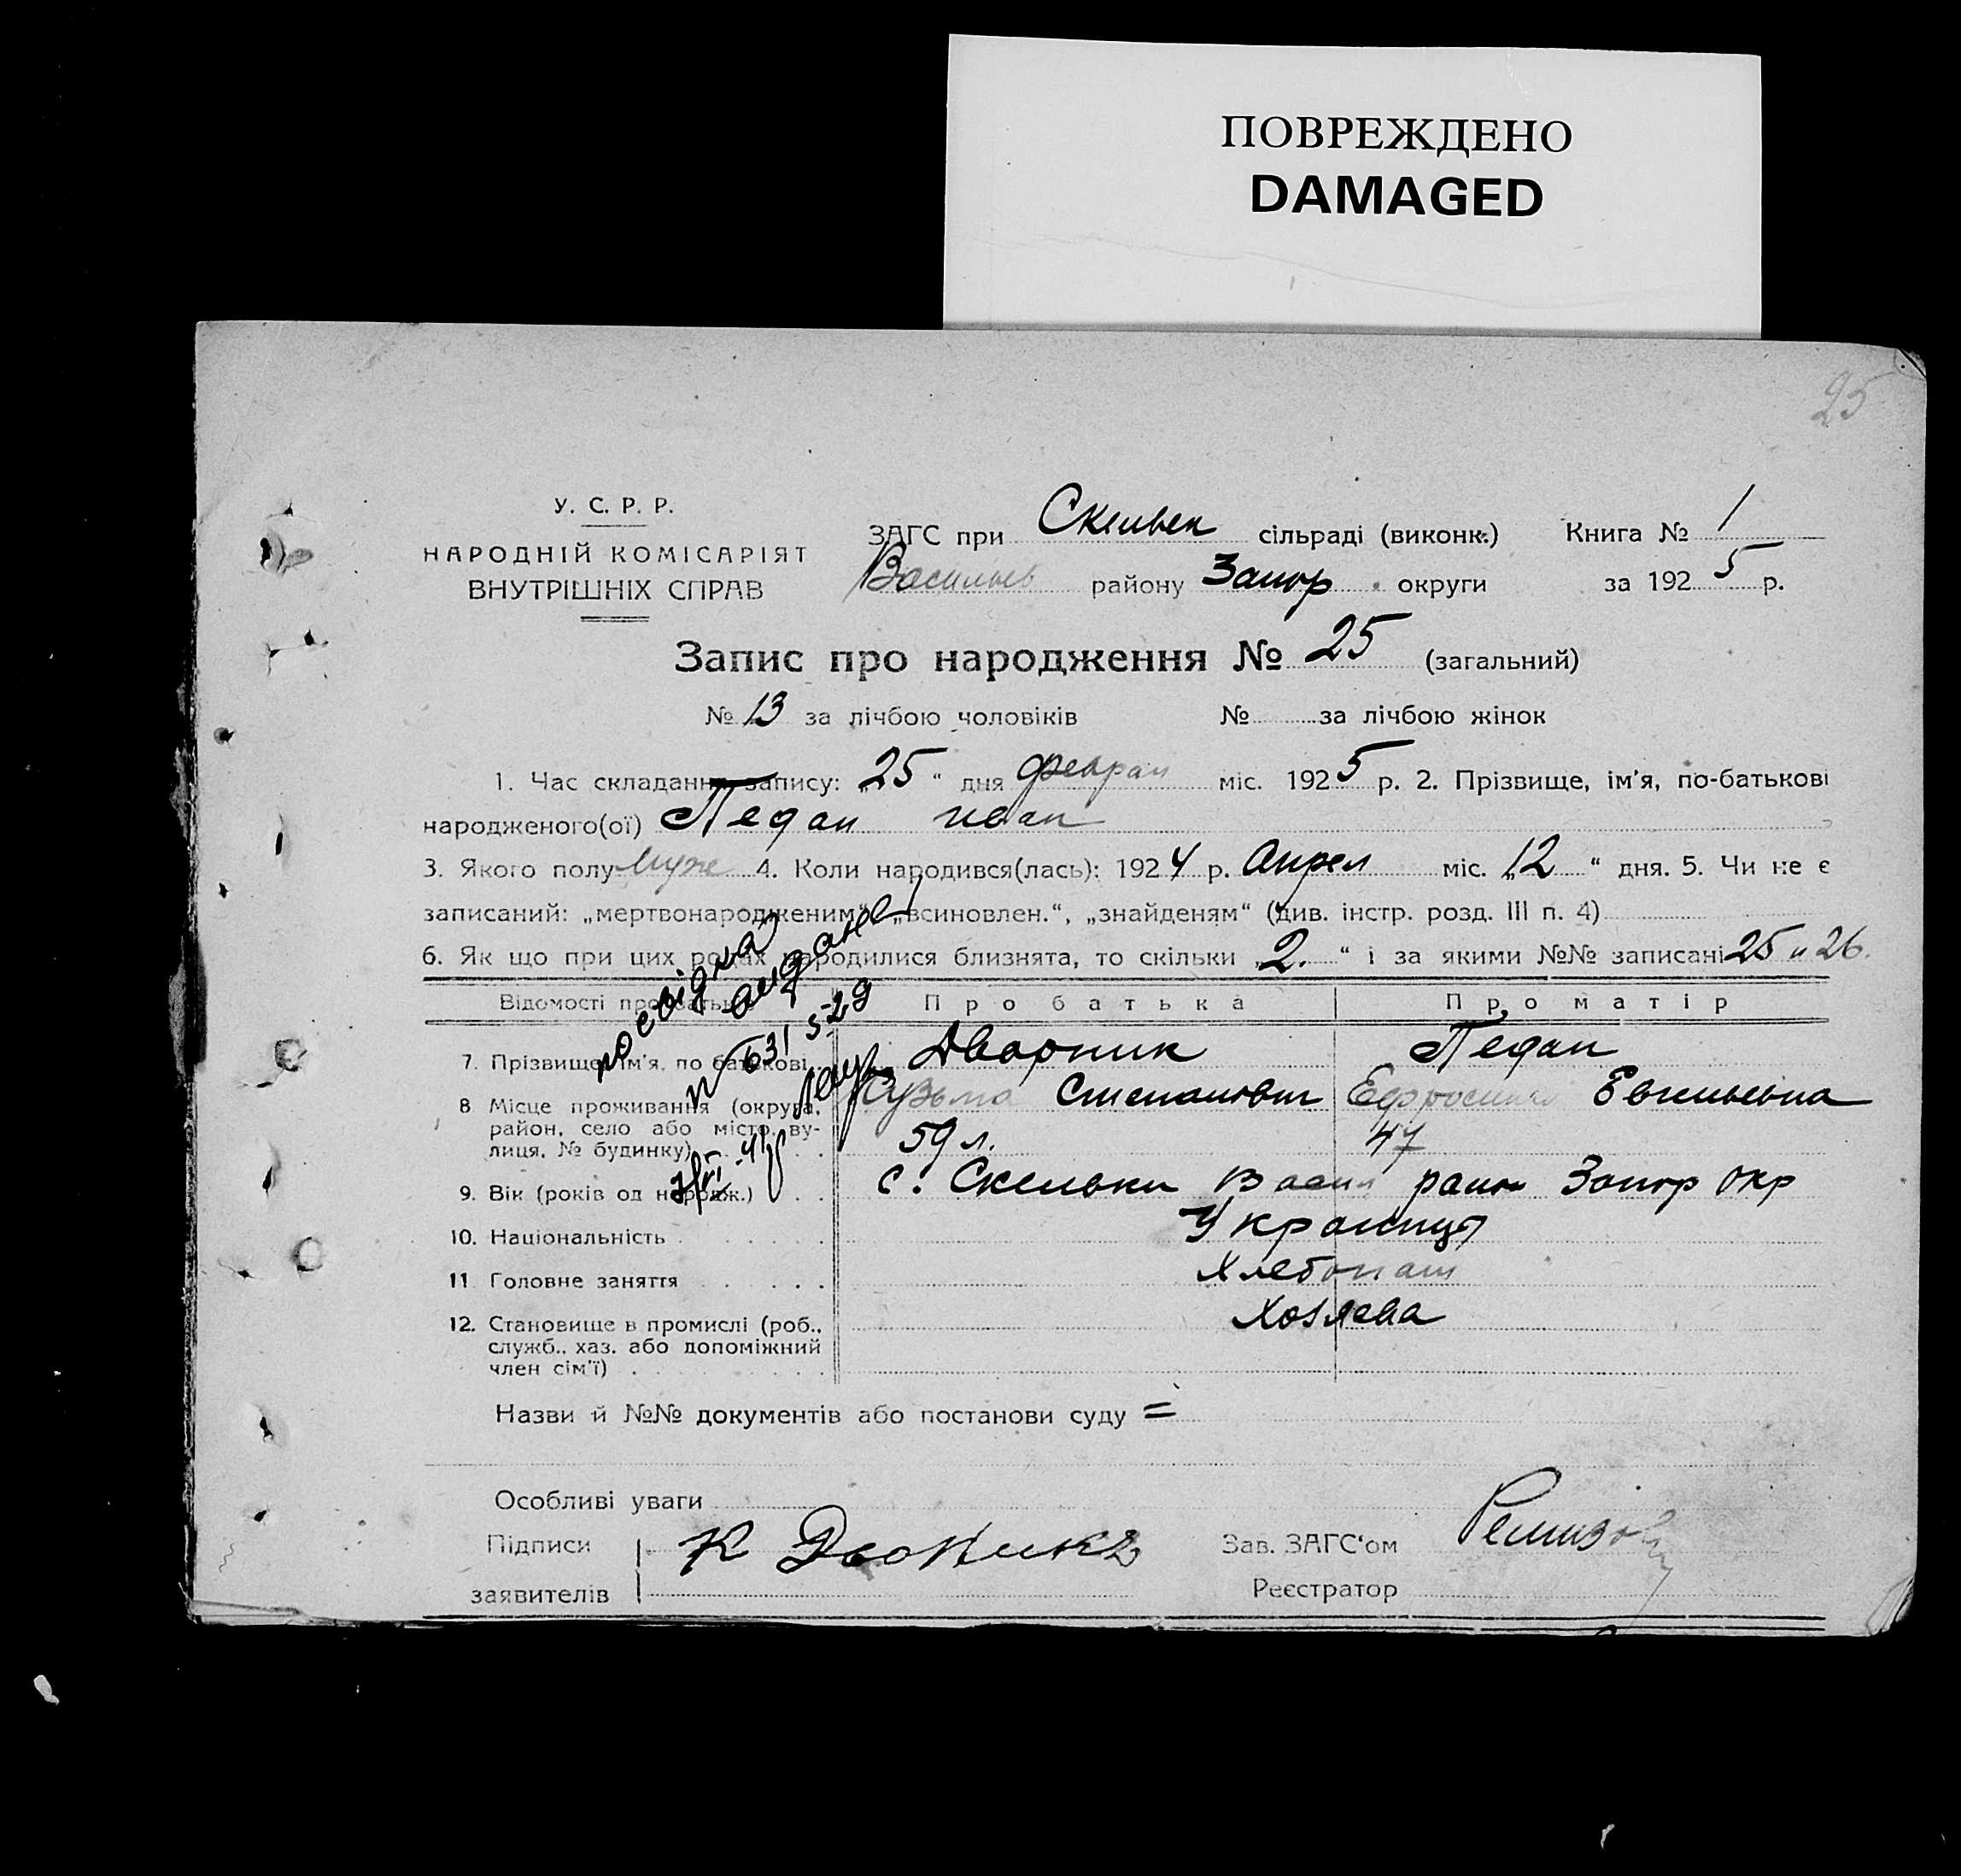 ПОВРЕЖДЕНО
DAMAGED
25
У. С. Р. Р.
НАРОДНІЙ КОМІСАРІЯТ
ВНУТРІШНІХ СПРАВ
ЗАГС при Скельвек сільраді (виконк.) Книга № 1
Васильев району Запор. округи за 1925 р.
Запис про народження № 25 (загальний)
№ 13 за лічбою чоловіків № за лічбою жінок
1. Час складання запису: „25“ дня феврал міс. 1925 р. 2. Прізвище, ім'я, по-батькові
народженого(ої) Педан иван
3. Якого полу Муже 4. Коли народився(лась): 1924 р. Апрел міс. „12“ дня. 5. Чи не є
записаний: „мертвонародженим“, „всиновлен.“, „знайденям“ (див. інстр. розд. III п. 4)
6. Як що при цих родах народилися близнята, то скільки „2.“ і за якими №№ записані 25 и 26.
Відомості про батьків Про батька Про матір
посвідка
видана
7. Прізвище, ім'я, по батькові Дворник Педан
8 Місце проживання (округа, район, село або місто, вулиця, № будинку) Кузьма Степанович Ефросиния Евгеньевна
59 л. 47
9. Вік (років од народж.) с. Скельки Васил район Запор окр
10. Національність Украинцы
11 Головне заняття Хлебопаш
12. Становище в промислі (роб., Хозяева
служб., хаз. або допоміжний
член сім'ї)
Назви й №№ документів або постанови суду =
Особливі уваги
Підписи К Двоникъ Зав. ЗАГС'ом Ремизов
заявителів Реєстратор